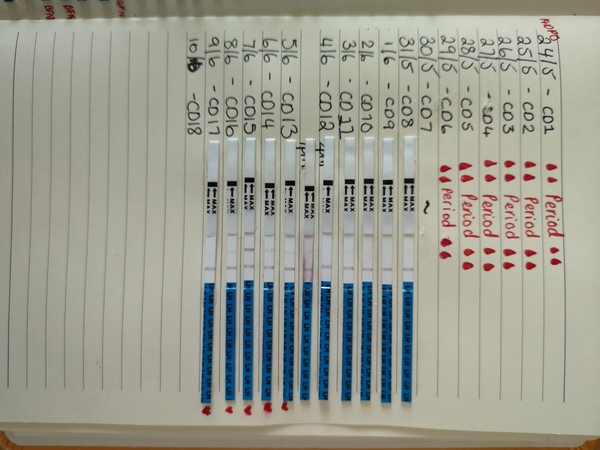 24/5 - CD1 Period
25/5 - CD2 Period
26/5 - CD3 Period
27/5 - CD4 Period
28/5 - CD5 Period
29/5 - CD6 Period
30/5 - CD7 ~
31/5 - CD8 MAX
1/6 - CD9 MAX
2/6 - CD10 MAX
3/6 - CD11 MAX
4/6 - CD12 MAX
MAX
5/6 - CD13 MAX
6/6 - CD14 MAX
7/6 - CD15 MAX
8/6 - CD16 MAX
9/6 - CD17 MAX
10/6 - CD18